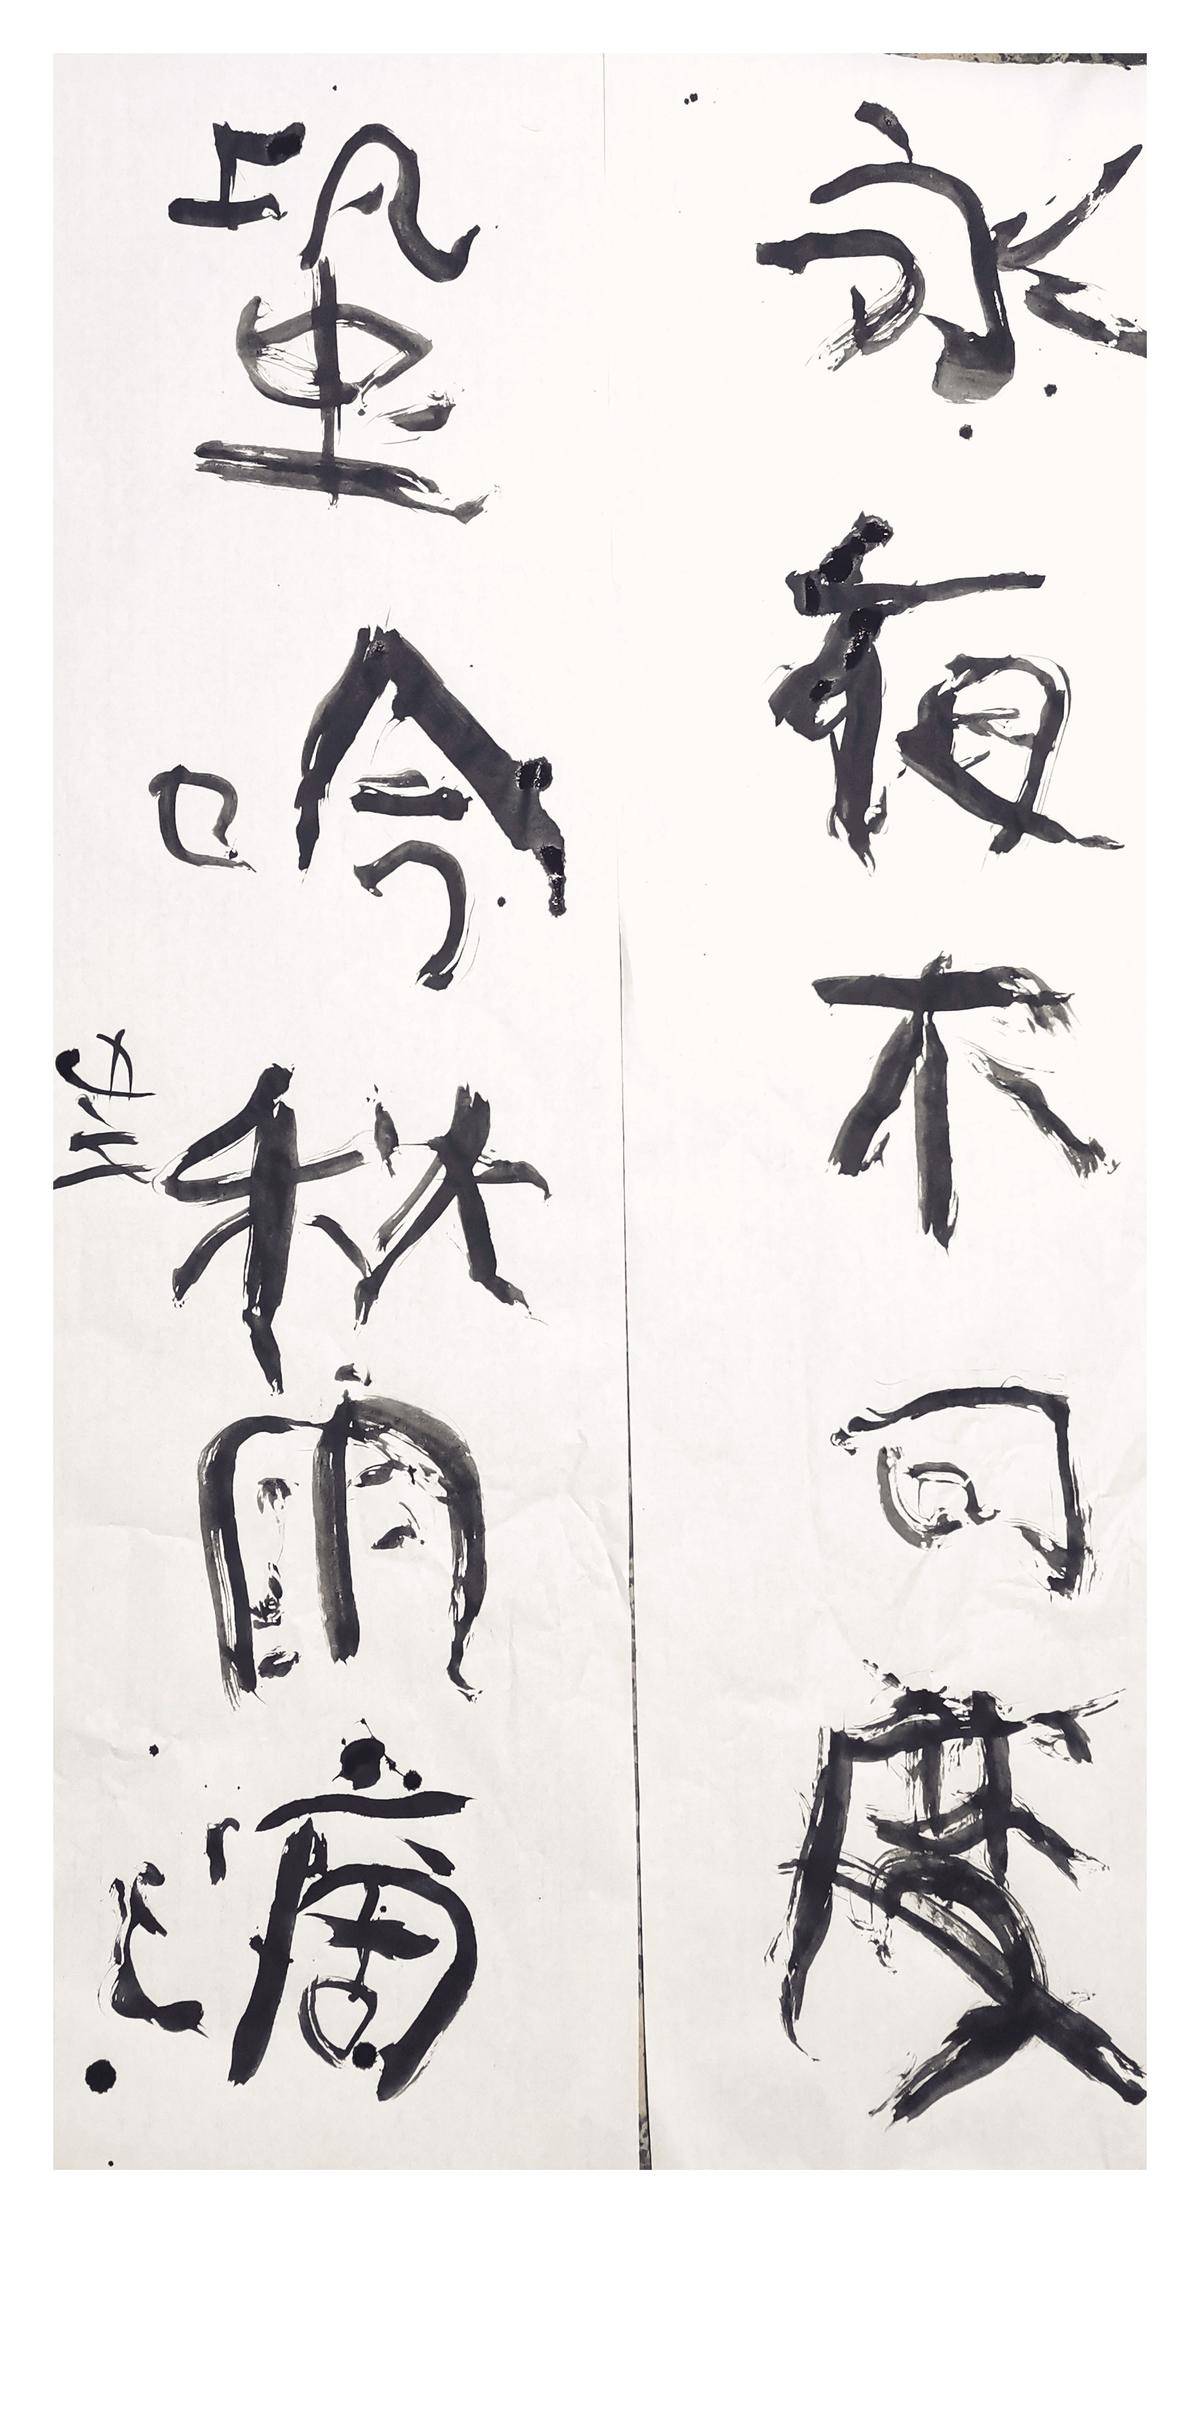 永夜不可度
蛩吟秋雨滴